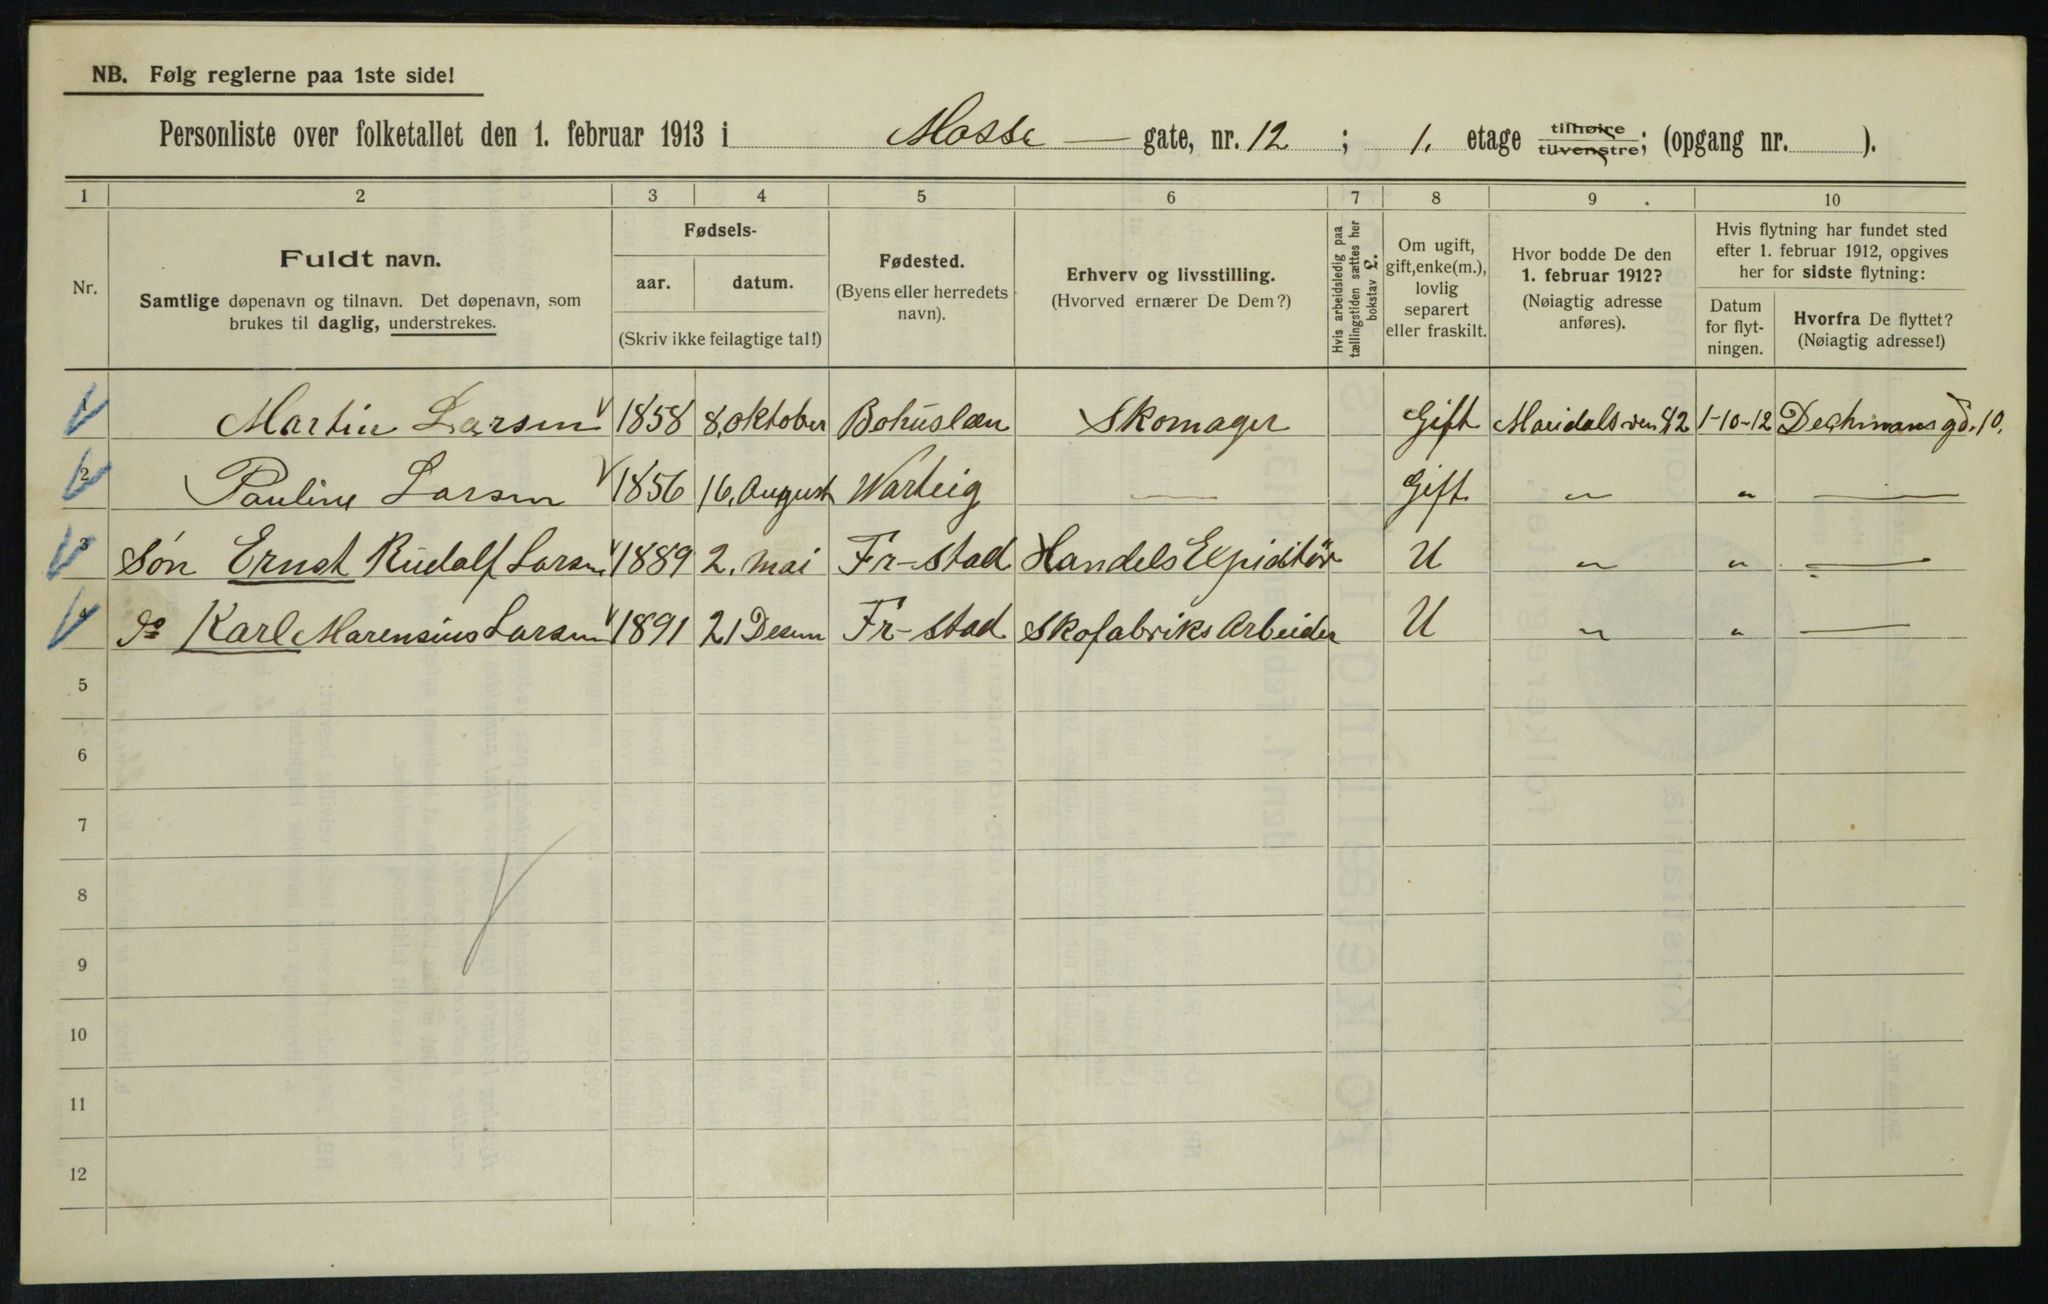 NB. Følg reglerne paa 1ste side!
Personliste over folketallet den 1. februar 1913 i Mosse gate, nr. 12 ; 1. etage tilhøire tilvenstre; (opgang nr. ).
1 2 3 4 5 6 7 8 9 10
Nr.
Fuldt navn.
Samtlige døpenavn og tilnavn. Det døpenavn, som
brukes til daglig, understrekes.
Fødsels-
aar. datum.
(Skriv ikke feilagtige tal!)
Fødested.
(Byens eller herredets
navn).
Erhverv og livsstilling.
(Hvorved ernærer De Dem?)
Hvis arbeidsledig paa
tællingstiden sættes her
bokstav L.
Om ugift,
gift, enke(m.),
lovlig
separert
eller fraskilt.
Hvor bodde De den
1. februar 1912?
(Nøiagtig adresse
anføres).
Hvis flytning har fundet sted
efter 1. februar 1912, opgives
her for sidste flytning:
Datum
for flyt-
ningen.
Hvorfra De flyttet?
(Nøiagtig adresse!)
1 Martin Larsen 1858 8. oktober Bohuslæn Skomager Gift Maridalsveien 1-10-12 Deichmans gd. 10.
2 Pauline Larsen 1856 16. August Varteig — Gift " " —
3 Søn Ernst Rudolf Larsen 1889 2. mai Fr-stad Handels Expiditør U " " —
4 do Karl Marensius Larsen 1891 21 Desem Fr-stad Skofabriks Arbeider U " " —
5
6
7
8
9
10
11
12